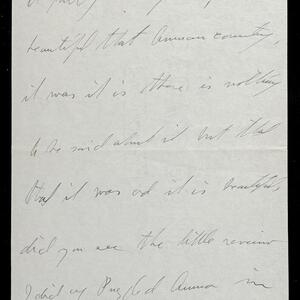 beautiful that American country,
it was it is there is nothing
to be said about it but that
that it was and it is beautiful,
did you see the little review
I did of Puzzled America in